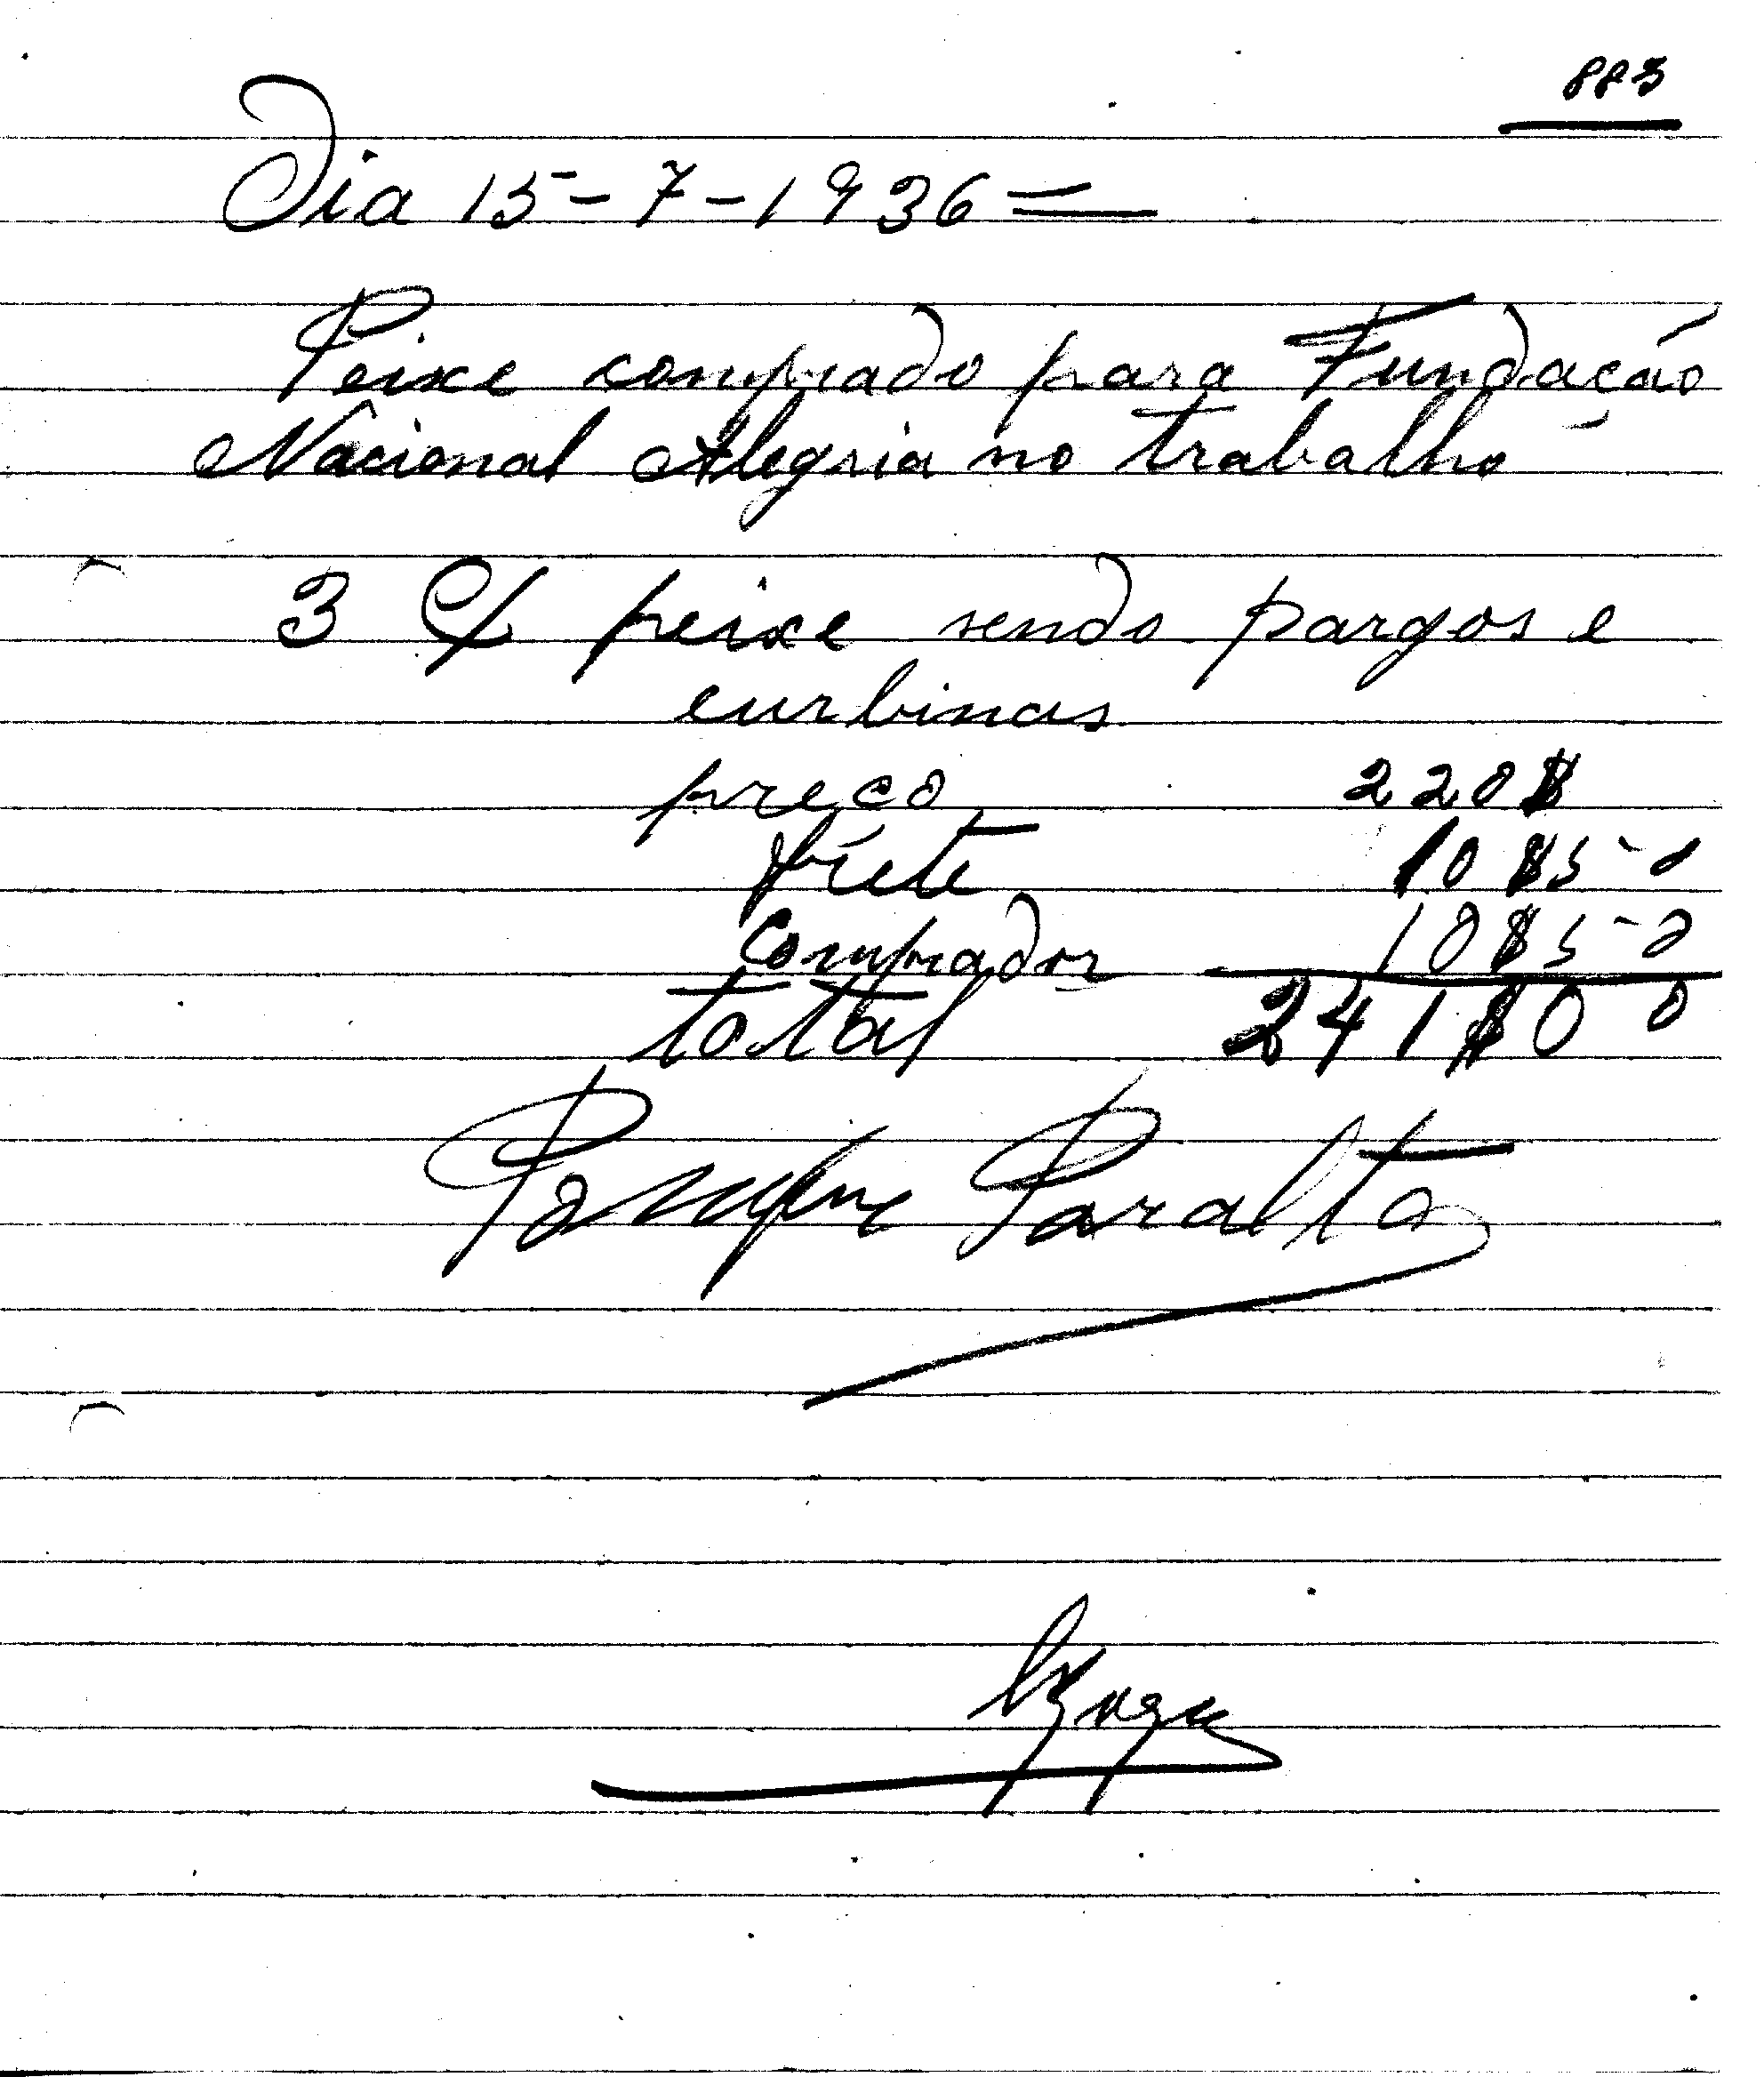 883
Dia 15-7-1936=
Peixe comprado para Fundação
Nacional Alegria no trabalho
3 C/ peixe sendo pargos e
curbinas
preço 220$
frete 10$50
Comprador 10$50
total 241$00
Paralta